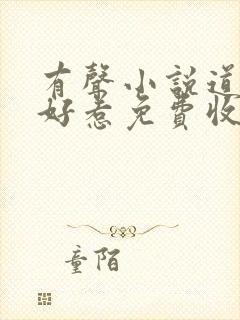 有聲小說道
好惹免費收
童陌